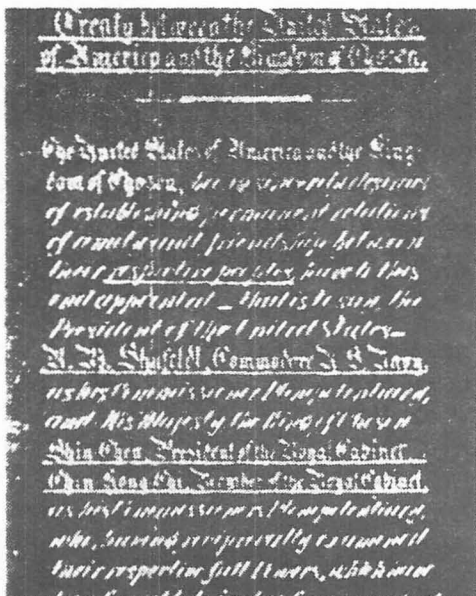 Treaty between the United States
of America and the Kingdom of Chosen.
The United States of America and the King-
dom of Chosen, being sincerely desirous
of establishing permanent relations
of amity and friendship between
their respective peoples have to this
end appointed _ that is to say, the
President of the United States _
R. W. Shufeldt, Commodore U.S. Navy,
as his Commissioner Plenipotentiary,
and His Majesty the King of Chosen
Shin Chen, President of the Royal Cabinet
Chin Hong Chi, Member of the Royal Cabinet,
as his Commissioners Plenipotentiary,
who, having reciprocally examined
their respective full Powers, which were